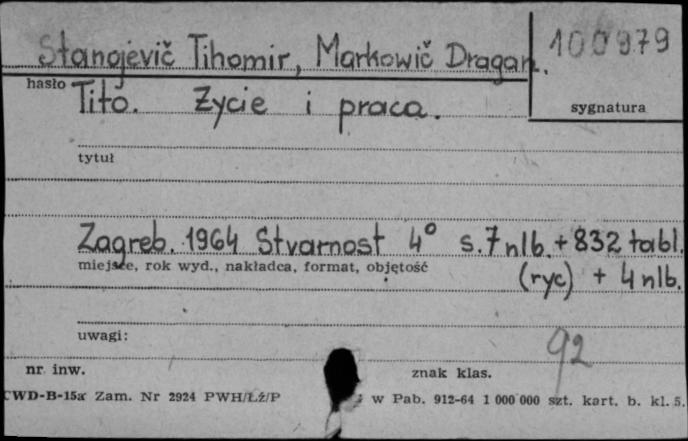 Stanojevič Tihomir, Markowič Dragan.
100979
hasło
Tito. Życie i praca.
sygnatura
tytuł
Zagreb. 1964 Stvarnost 4° s. 7 nlb. + 832 tabl.
miejsce, rok wyd., nakładca, format, objętość
(ryc) + 4 nlb.
uwagi:
92
nr inw.
znak klas.
CWD-B-15a Zam. Nr 2924 PWH/Łź/P w Pab. 912-64 1 000 000 szt. kart. b. kl. 5.